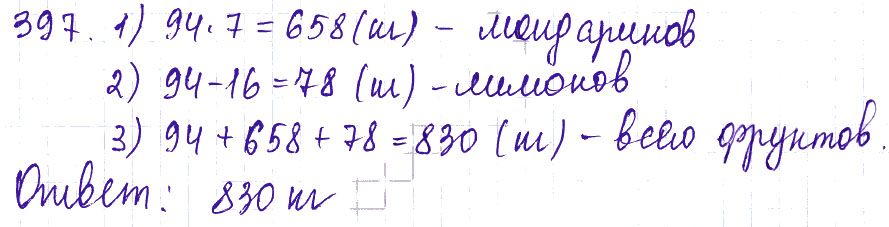 397. 1) 94·7=658(ш) – мандаринов
2) 94-16=78 (ш) – лимонов
3) 94+658+78=830 (ш) – всего фрунтов.
Ответ: 830 ш